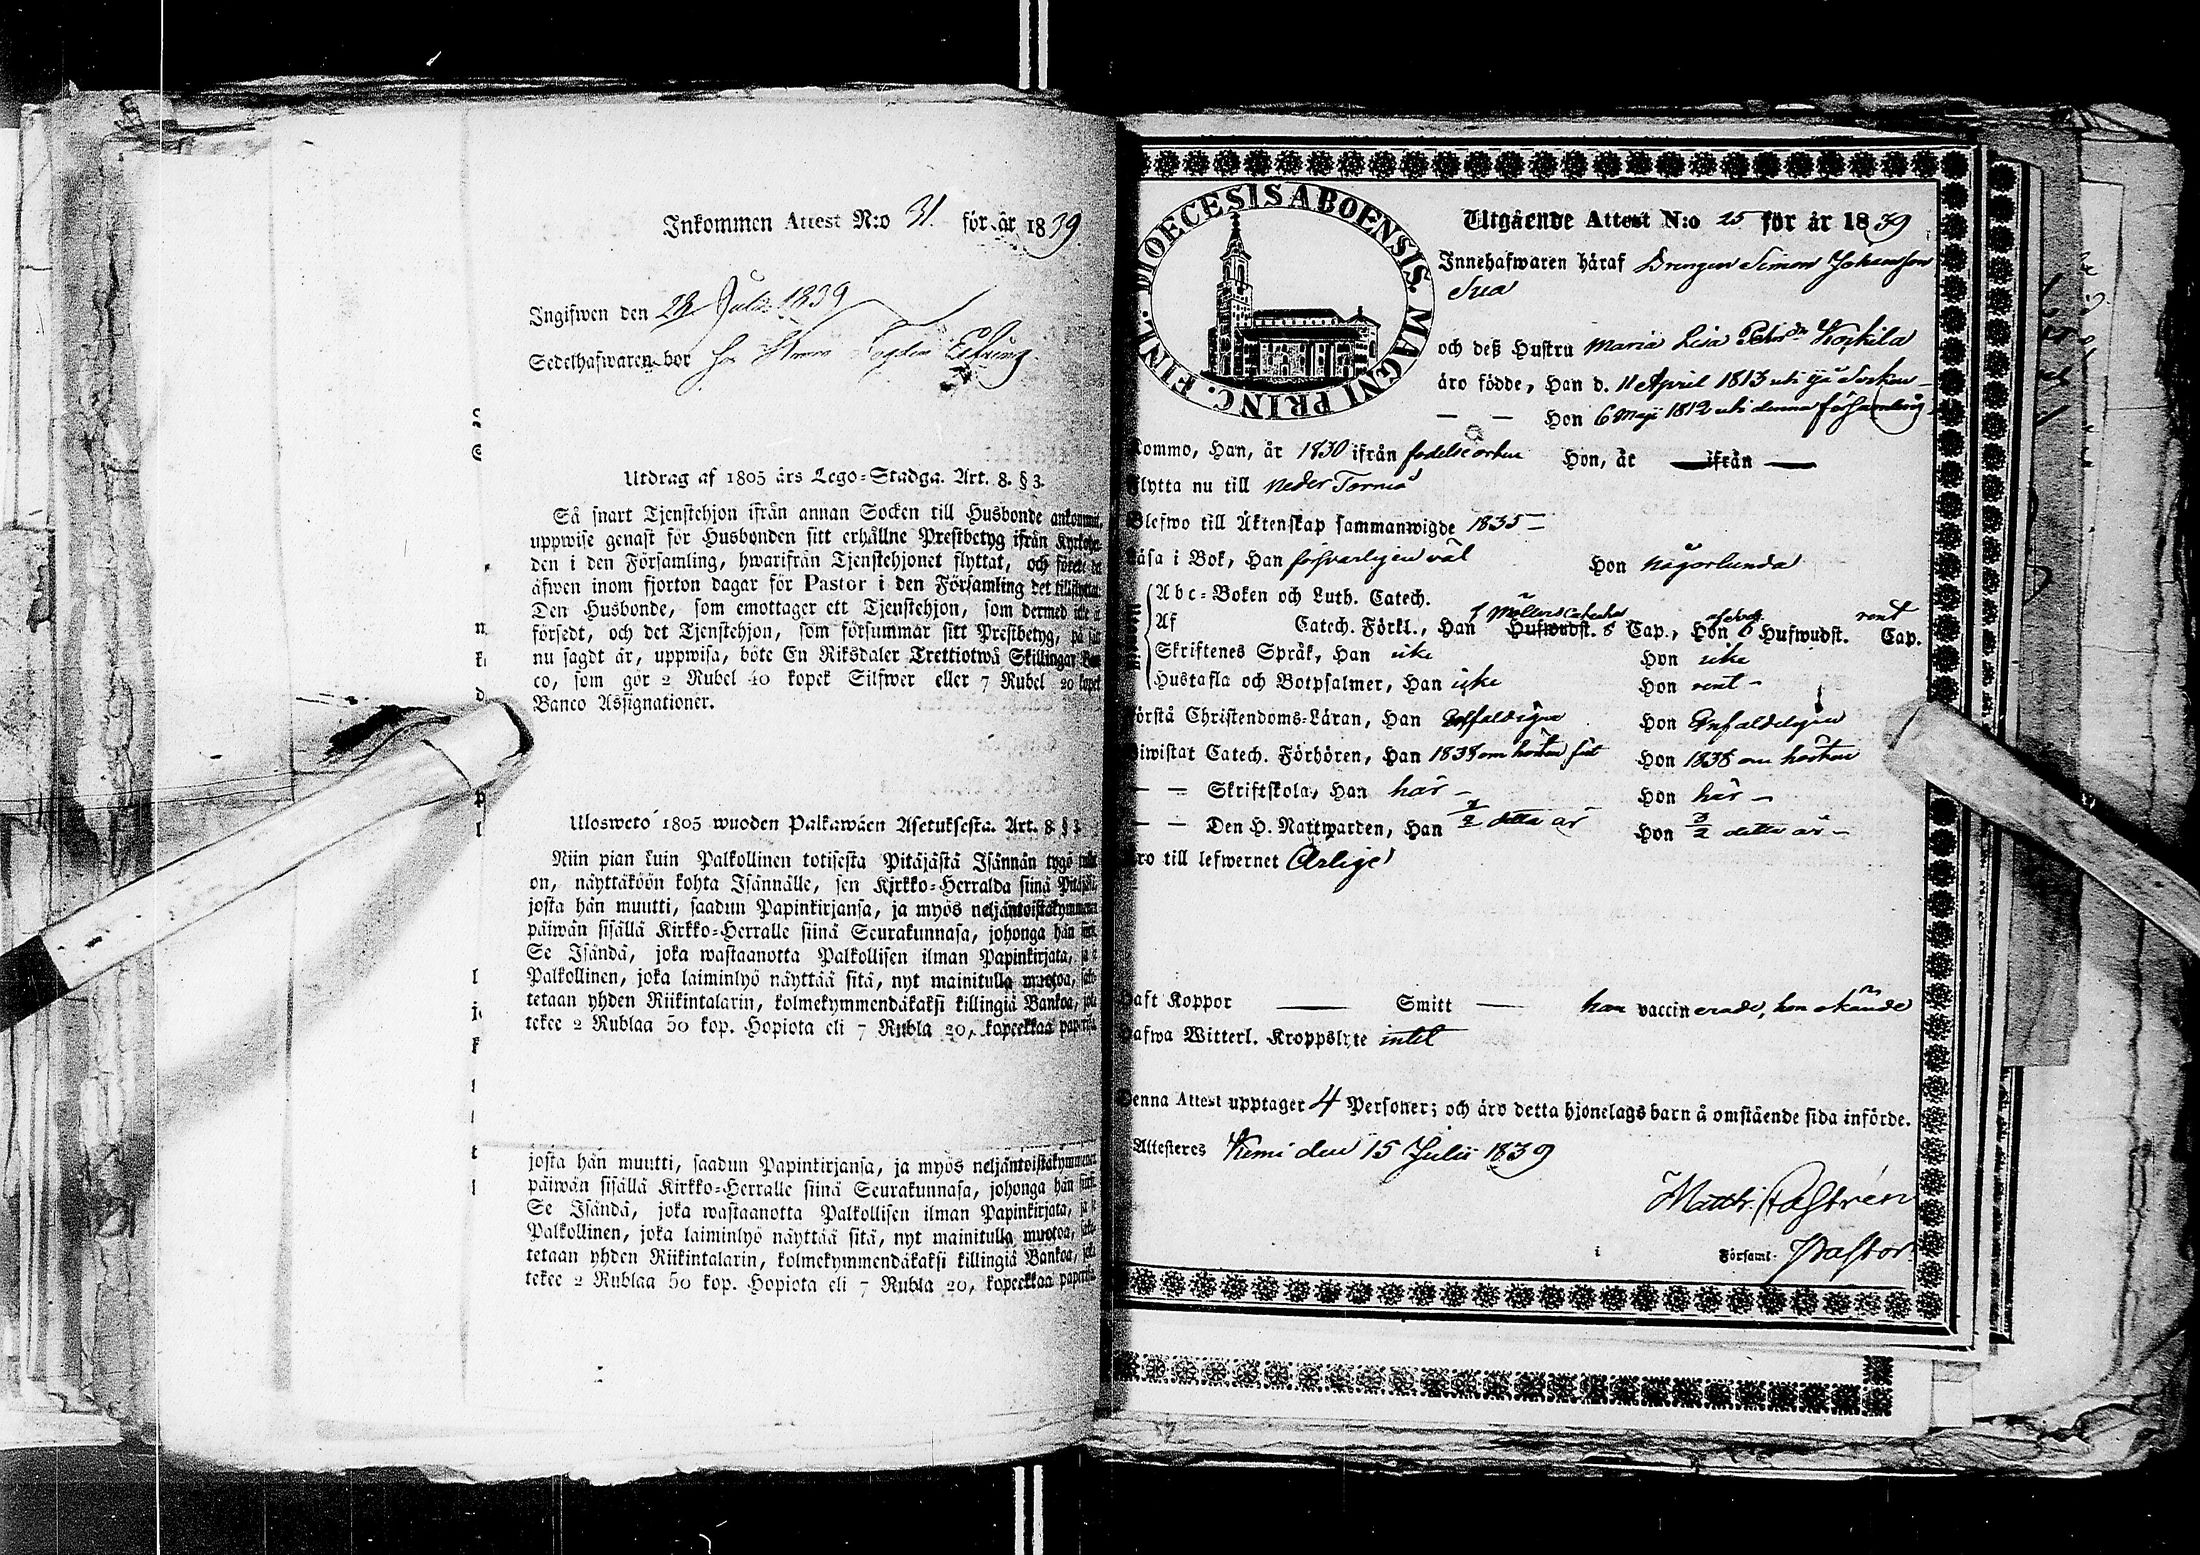 Inkommen Attest N:o 31. för år 1839.
Ingifwen den 28 Julii 1839
Sedelhafwaren bor
Utdrag af 1805 års Lego-Stadga. Art. 8. § 3.
Så snart Tjenstehjon ifrån annan Socken till Husbonde ankommit,
uppwise genast för Husbonden sitt erhållne Prestbetyg ifrån
den i den Församling, hwarifrån Tjenstehjonet flyttat, och
äfwen inom fjorton dagar för Pastor i den Församling det
Den Husbonde, som emottager ett Tjenstehjon, som dermed
försedt, och det Tjenstehjon, som försummar sitt Prestbetyg, på
nu sagdt är, uppwisa, böte En Riksdaler Trettiotwå Skillingar
co, som gör 2 Rubel 40 kopek Silfwer eller 7 Rubel 20 kopek
Banco Assignationer.
Ulosweto 1805 wuoden Palkawäen Asetuksesta. Art. 8. § 3.
Niin pian kuin Palkollinen totisesta Pitäjästä Isännän tygö
on, näyttäköön kohta Isännälle, sen Kirkko-Herralda siinä
josta hän muutti, saadun Papinkirjansa, ja myös neljäntoistakymmenen
päiwän sisällä Kirkko-Herralle siinä Seurakunnasa, johonga hän
Se Isändä, joka wastaanotta Palkollisen ilman Papinkirjata,
Palkollinen, joka laiminlyö näyttää sitä, nyt mainitulla muotoa,
tetaan yhden Riikintalarin, kolmekymmendäkaksi killingiä Bankoa,
tekee 2 Rublaa 50 kop. Hopiota eli 7 Rubla 20, kopeekkaa
josta hän muutti, saadun Papinkirjansa, ja myös neljäntoistakymmenen
päiwän sisällä Kirkko-Herralle siinä Seurakunnasa, johonga hän
Se Isändä, joka wastaanotta Palkollisen ilman Papinkirjata,
Palkollinen, joka laiminlyö näyttää sitä, nyt mainitulla muotoa,
tetaan yhden Riikintalarin, kolmekymmendäkaksi killingiä Bankoa,
tekee 2 Rublaa 50 kop. Hopiota eli 7 Rubla 20, kopeekkaa
DIOECESIS ABOENSIS. MAGNI PRINC. FINL.
Utgående Attest N:o 25 för år 1839
Innehafwaren häraf Drengen Simon Johansson
och deß Hustru Maria Lisa Petrsdr Korkila
äro födde, Han d. 11 April 1813 uti Ijå Socken
— — Hon 6 Maji 1812 uti denna församling
Kommo, Han, år 1830 ifrån Hon, år — ifrån —
Flytta nu till Neder Torneå
Blefwo till Äktenskap sammanwigde 1835 —
Läsa i Bok, Han försvarligen väl Hon någorlunda
Abc-Boken och Luth. Catech.
Af Catech. Förkl., Han Hufwudst. Cap., Hon Hufwudst. rent Cap.
Skriftenes Språk, Han icke Hon icke
Hustafla och Botpsalmer, Han icke Hon rent —
Förstå Christendoms-Läran, Han Enfaldigen Hon Enfaldeligen
Biwistat Catech. Förhören, Han 1838 om hösten Hon 1838 om hösten
— — Skriftskola, Han här — Hon här —
— — Den H. Nattwarden, Han detta år Hon 3/2 detta år —
Äro till lefwernet Ärlige
Haft Koppor — Smitt — han vaccinerade, hon okände
Hafwa Witterl. Kroppslyte intet
Denna Attest upptager 4 Personer; och äro detta hjonelags barn å omstående sida införde.
Attesteres Kemi den 15 Julii 1839
Matth. Castrén
Församl. Pastor.